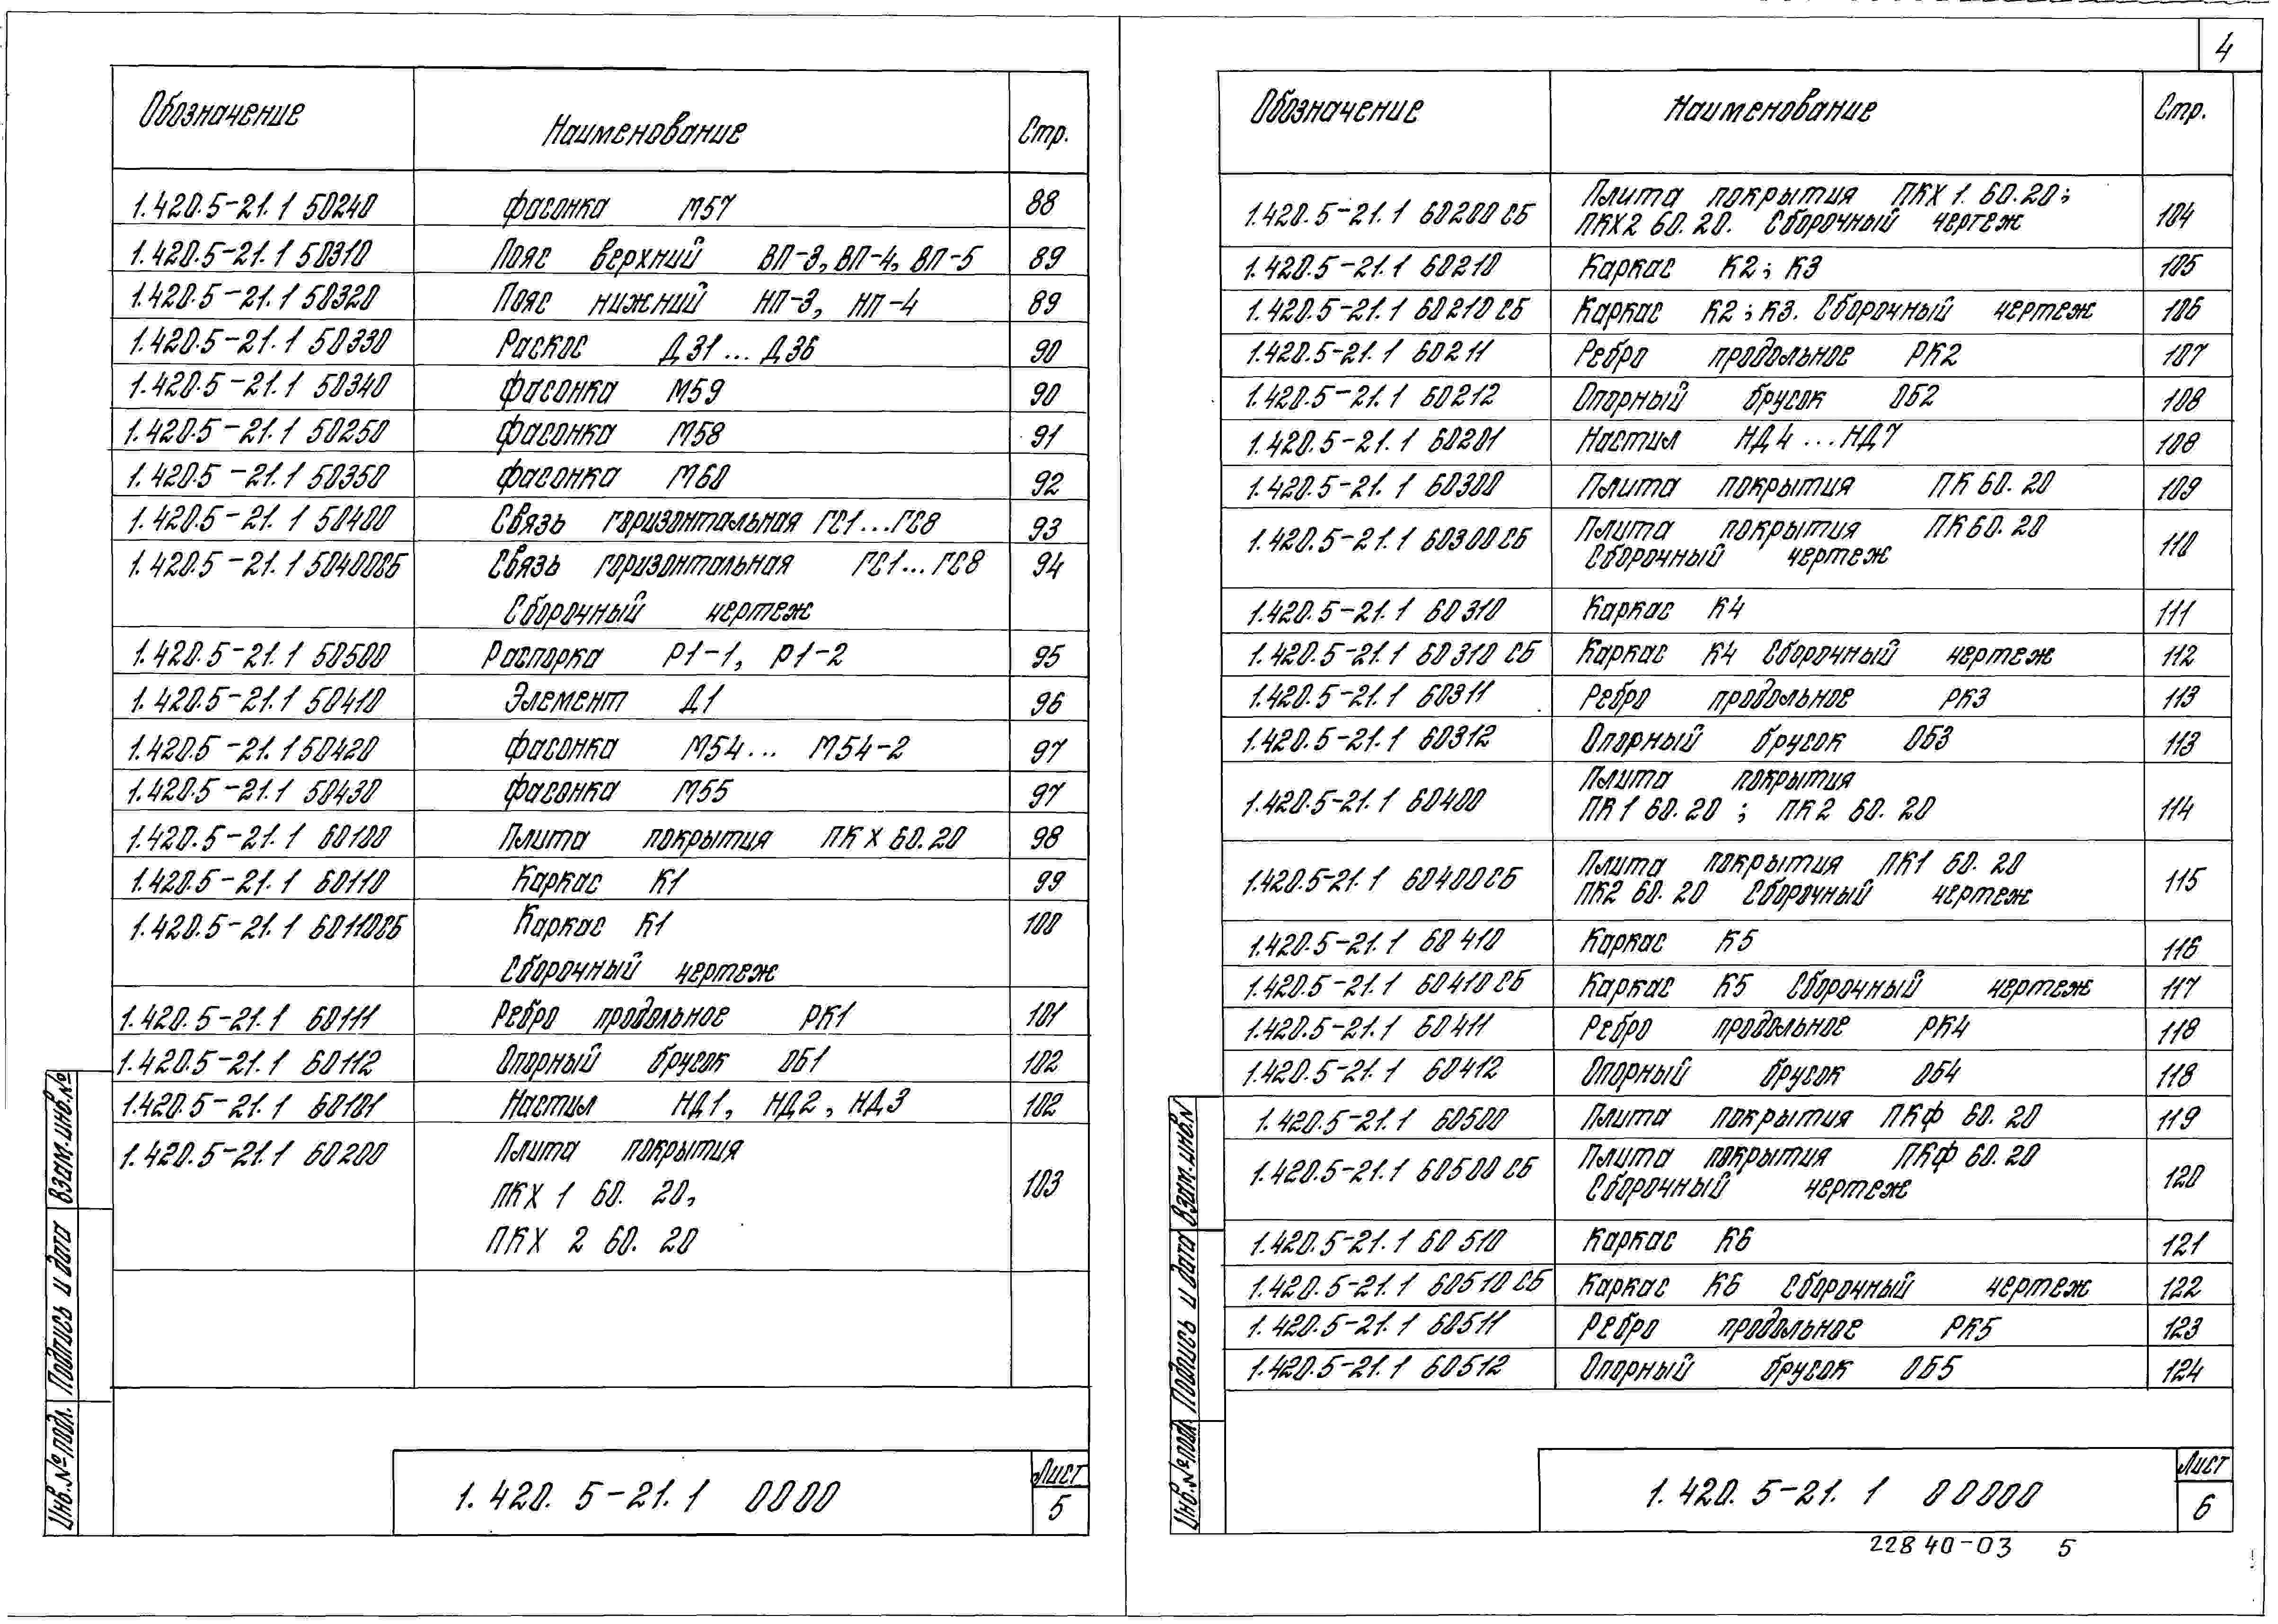 4
Обозначение Наименование Стр.
1.420.5-21.1 50240 Фасонка М57 88
1.420.5-21.1 50310 Пояс верхний ВП-3, ВП-4, ВП-5 89
1.420.5-21.1 50320 Пояс нижний НП-3, НП-4 89
1.420.5-21.1 50330 Раскос Д31...Д36 90
1.420.5-21.1 50340 Фасонка М59 90
1.420.5-21.1 50250 Фасонка М58 91
1.420.5-21.1 50350 Фасонка М60 92
1.420.5-21.1 50400 Связь горизонтальная ГС1...ГС8 93
1.420.5-21.1 50400СБ Связь горизонтальная ГС1...ГС8 94
Сборочный чертеж
1.420.5-21.1 50500 Распорка Р1-1, Р1-2 95
1.420.5-21.1 50410 Элемент Д1 96
1.420.5-21.1 50420 Фасонка М54... М54-2 97
1.420.5-21.1 50430 Фасонка М55 97
1.420.5-21.1 60100 Плита покрытия ПКХ 60.20 98
1.420.5-21.1 60110 Каркас К1 99
1.420.5-21.1 60110СБ Каркас К1 100
Сборочный чертеж
1.420.5-21.1 60111 Ребро продольное РК1 101
1.420.5-21.1 60112 Опорный брусок ОБ1 102
1.420.5-21.1 60101 Настил НД1, НД2, НД3 102
1.420.5-21.1 60200 Плита покрытия
ПКХ 1 60. 20, 103
ПКХ 2 60. 20
Взам.инв.№
Подпись и дата
Инв.№подл.
1.420.5-21.1 0000
Лист
5
Обозначение Наименование Стр.
1.420.5-21.1 60200СБ Плита покрытия ПКХ 1. 60.20; 104
ПКХ2 60.20. Сборочный чертеж
1.420.5-21.1 60210 Каркас К2; К3 105
1.420.5-21.1 60210СБ Каркас К2; К3. Сборочный чертеж 106
1.420.5-21.1 60211 Ребро продольное РК2 107
1.420.5-21.1 60212 Опорный брусок ОБ2 108
1.420.5-21.1 60201 Настил НД4...НД7 108
1.420.5-21.1 60300 Плита покрытия ПК 60.20 109
1.420.5-21.1 60300СБ Плита покрытия ПК60.20 110
Сборочный чертеж
1.420.5-21.1 60310 Каркас К4 111
1.420.5-21.1 60310 СБ Каркас К4 Сборочный чертеж 112
1.420.5-21.1 60311 Ребро продольное РК3 113
1.420.5-21.1 60312 Опорный брусок ОБ3 113
1.420.5-21.1 60400 Плита покрытия 114
ПК1 60.20; ПК2 60.20
1.420.5-21.1 60400СБ Плита покрытия ПК1 60.20 115
ПК2 60.20 Сборочный чертеж
1.420.5-21.1 60410 Каркас К5 116
1.420.5-21.1 60410СБ Каркас К5 Сборочный чертеж 117
1.420.5-21.1 60411 Ребро продольное РК4 118
1.420.5-21.1 60412 Опорный брусок ОБ4 118
1.420.5-21.1 60500 Плита покрытия ПКФ 60.20 119
1.420.5-21.1 60500 СБ Плита покрытия ПКФ 60.20 120
Сборочный чертеж
1.420.5-21.1 60510 Каркас К6 121
1.420.5-21.1 60510 СБ Каркас К6 Сборочный чертеж 122
1.420.5-21.1 60511 Ребро продольное РК5 123
1.420.5-21.1 60512 Опорный брусок ОБ5 124
Взам.инв.N
Подпись и дата
Инв.№подл.
1.420.5-21.1 00000
Лист
6
22840-03 5